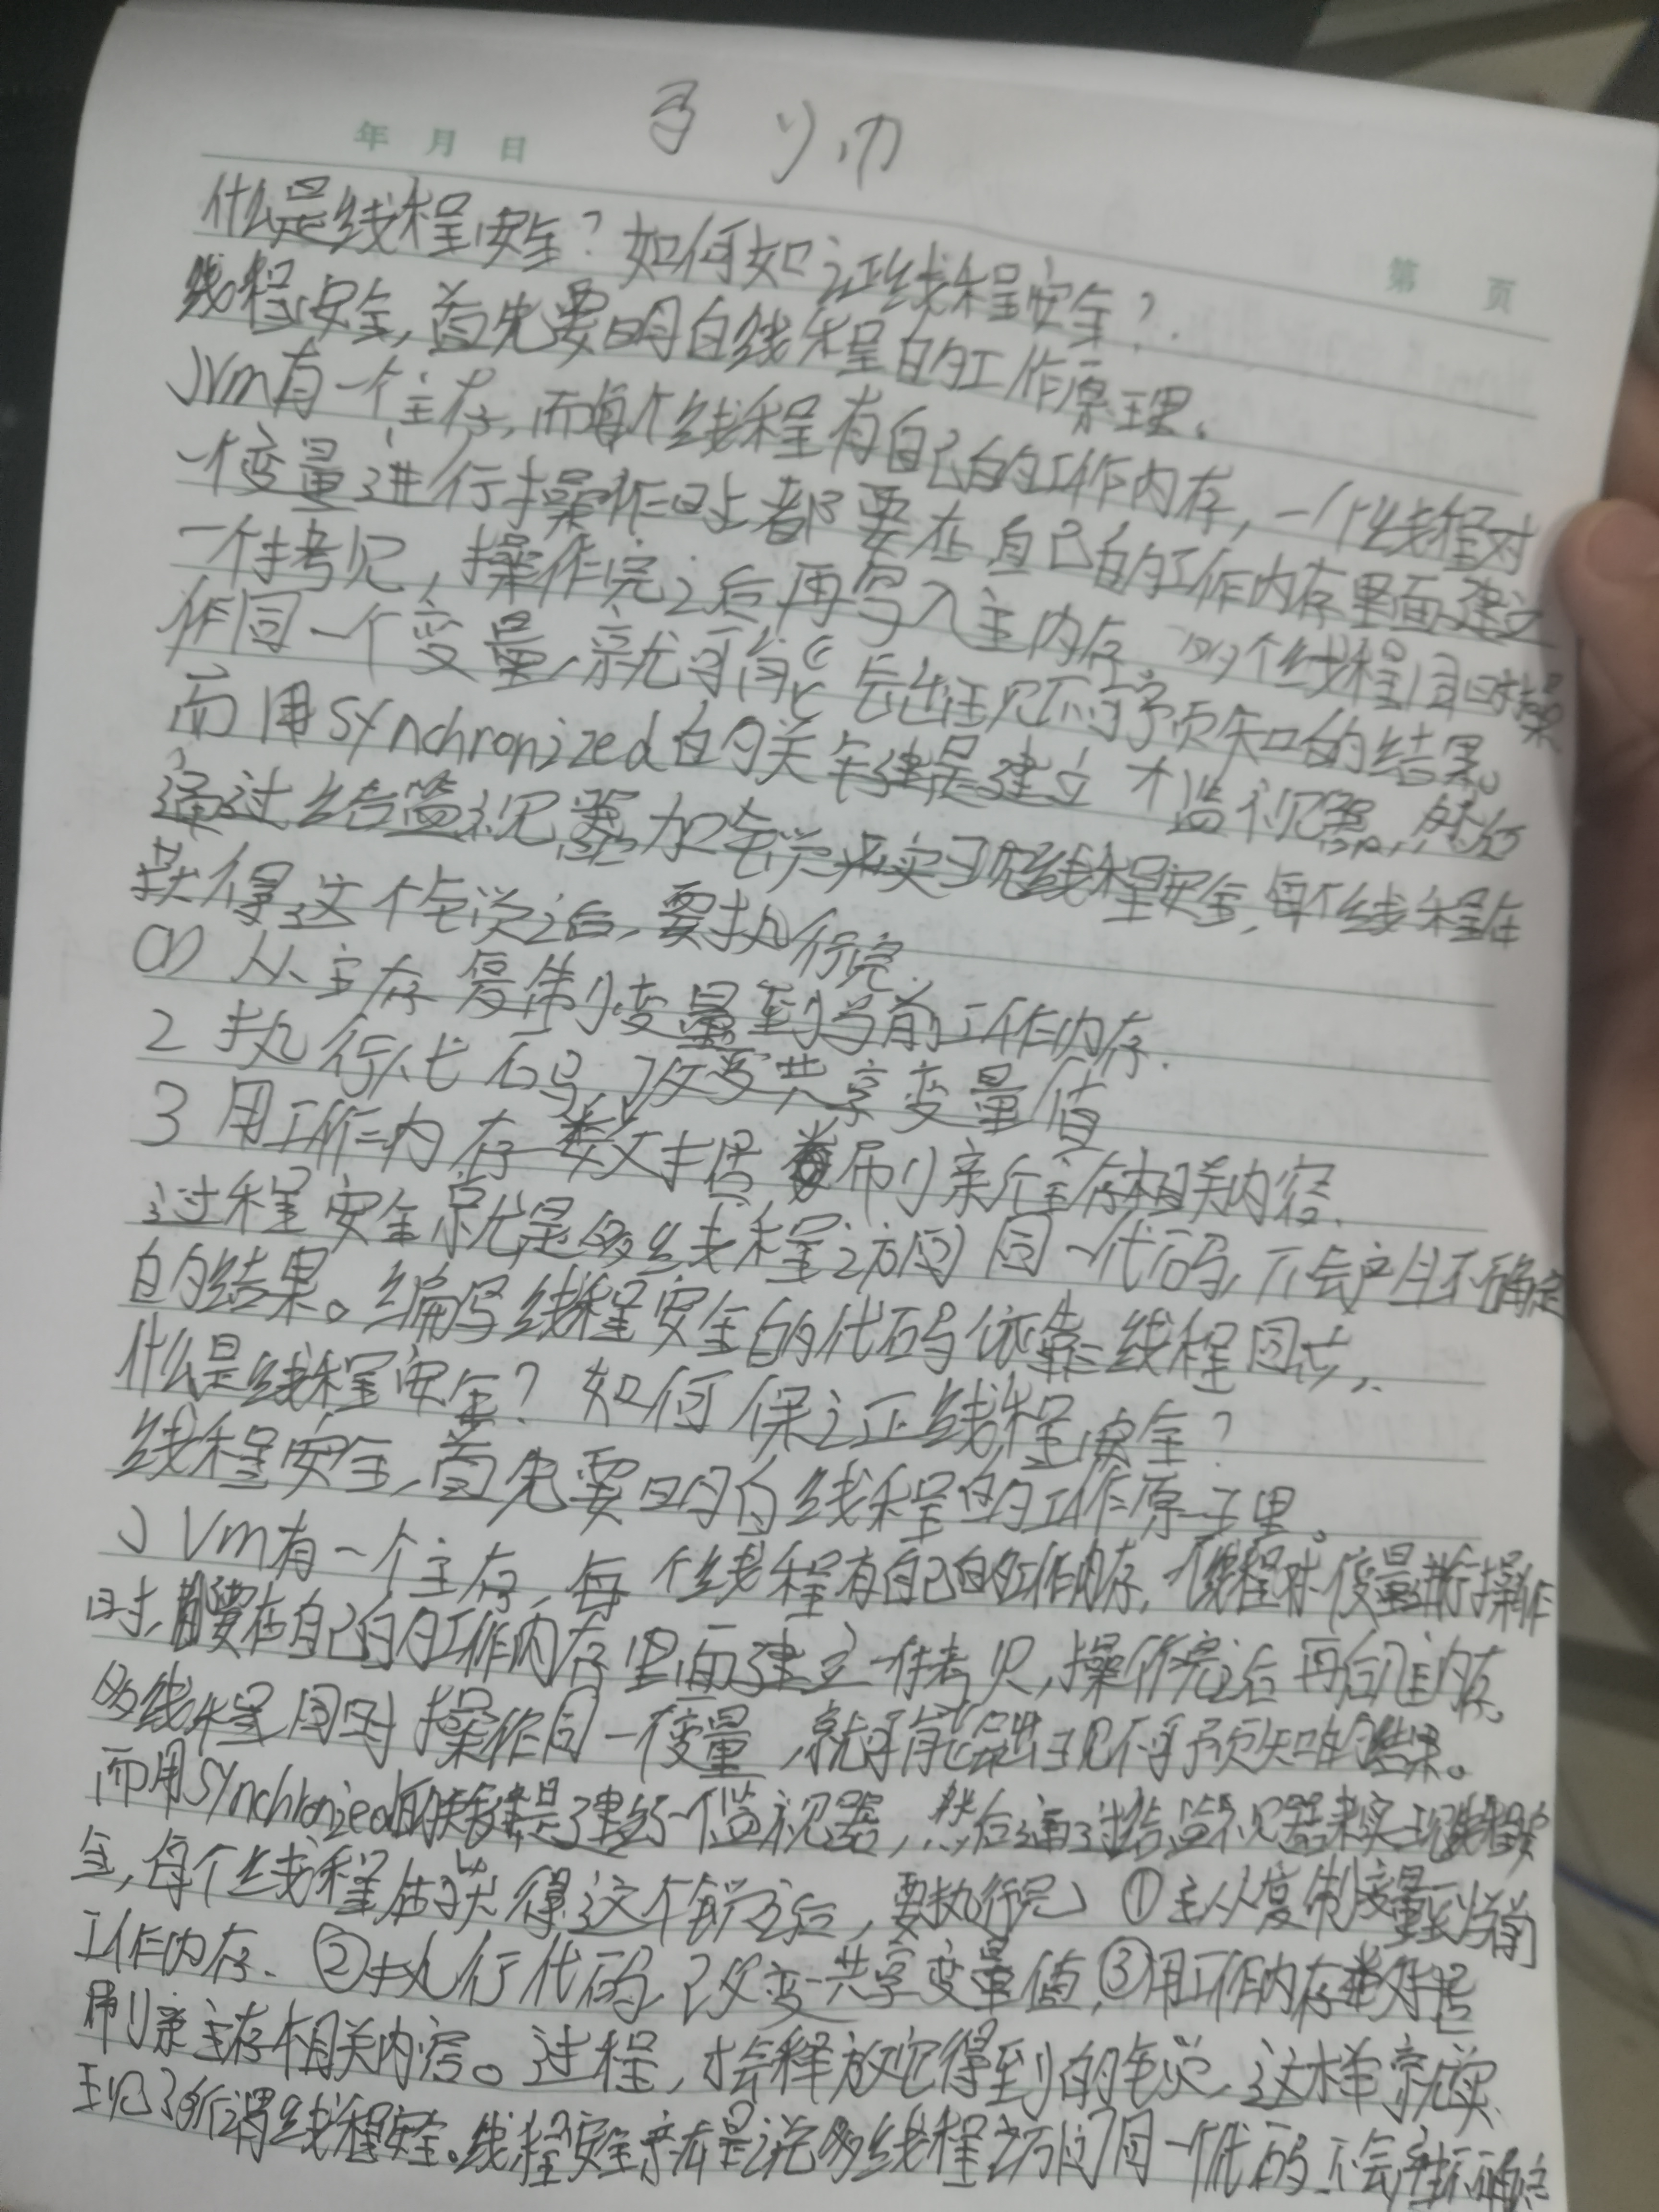 年 月 日
第 页
什么是线程安全?如何如证线程安全?
线程安全,首先要明白线程的工作原理。
JVm有一个主存,而每个线程有自己的工作内存,一个线程对
一个变量进行操作时都要在自己的工作内存里面建立
一个拷贝,操作完之后再写入主内存。多个线程同时操
作同一个变量,就可能会出现不可预知的结果。
而用synchronized的关键是建立个监视器,然后
通过给监视器加锁来实现线程安全,每个线程在
获得这个锁之后,要执行完
(1) 从主存复制变量到当前工作内存.
2 执行代码,改变共享变量值
3 用工作内存数据刷新主存相关内容.
过程安全就是多线程访问同一代码,不会产生不确定
的结果。编写线程安全的代码依靠线程同步.
什么是线程安全?如何保证线程安全?
线程安全,首先要明白线程的工作原理。
JVm有一个主存,每个线程有自己的工作内存,个线程对一个变量进行操作
时,都要在自己的工作内存里面建立一个拷贝,操作完之后再写主内存。
多线程同时操作同一个变量,就可能会出现不可预知的结果。
而用synchronized的关键是建立一个监视器,然后通过给监视器来实现线程安
全,每个线程在获得这个锁之后,要执行完 ①主从复制变量到当前
工作内存. ②执行代码,改变共享变量值,③用工作内存数据
刷新主存相关内容。过程,才会释放它得到的锁,这样就实
现了所谓线程安全。线程安全就是说多线程访问同一个代码,不会产生不确定